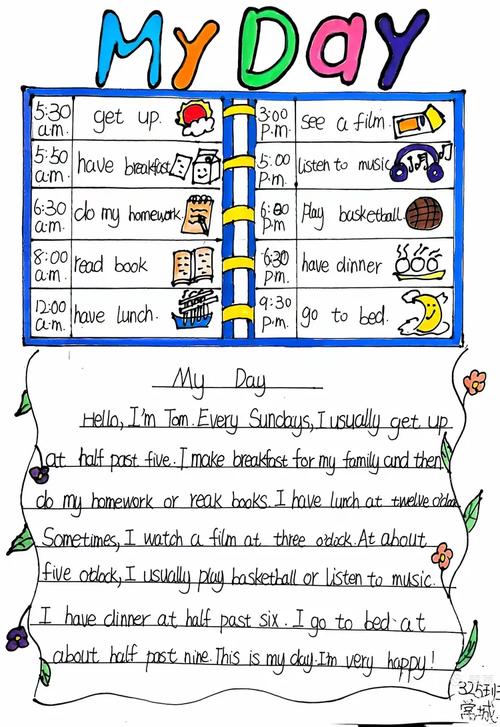 My Day
5:30 a.m. get up.
5:50 a.m. have breakfast.
6:30 a.m. do my homework.
8:00 a.m. read book
12:00 a.m. have lunch.
3:00 p.m. see a film.
5:00 p.m. listen to music
6:00 p.m play basketball.
6:30 p.m have dinner
9:30 p.m. go to bed.
My Day
Hello, I'm Tom. Every Sundays, I usually get up
at half past five. I make breakfast for my family and then
do my homework or reak books. I have lunch at twelve o'clock
Sometimes, I watch a film at three o'clock. At about
five o'clock, I usually play basketball or listen to music.
I have dinner at half past six. I go to bed at
about half past nine. This is my day. I'm very happy!
325班
常城